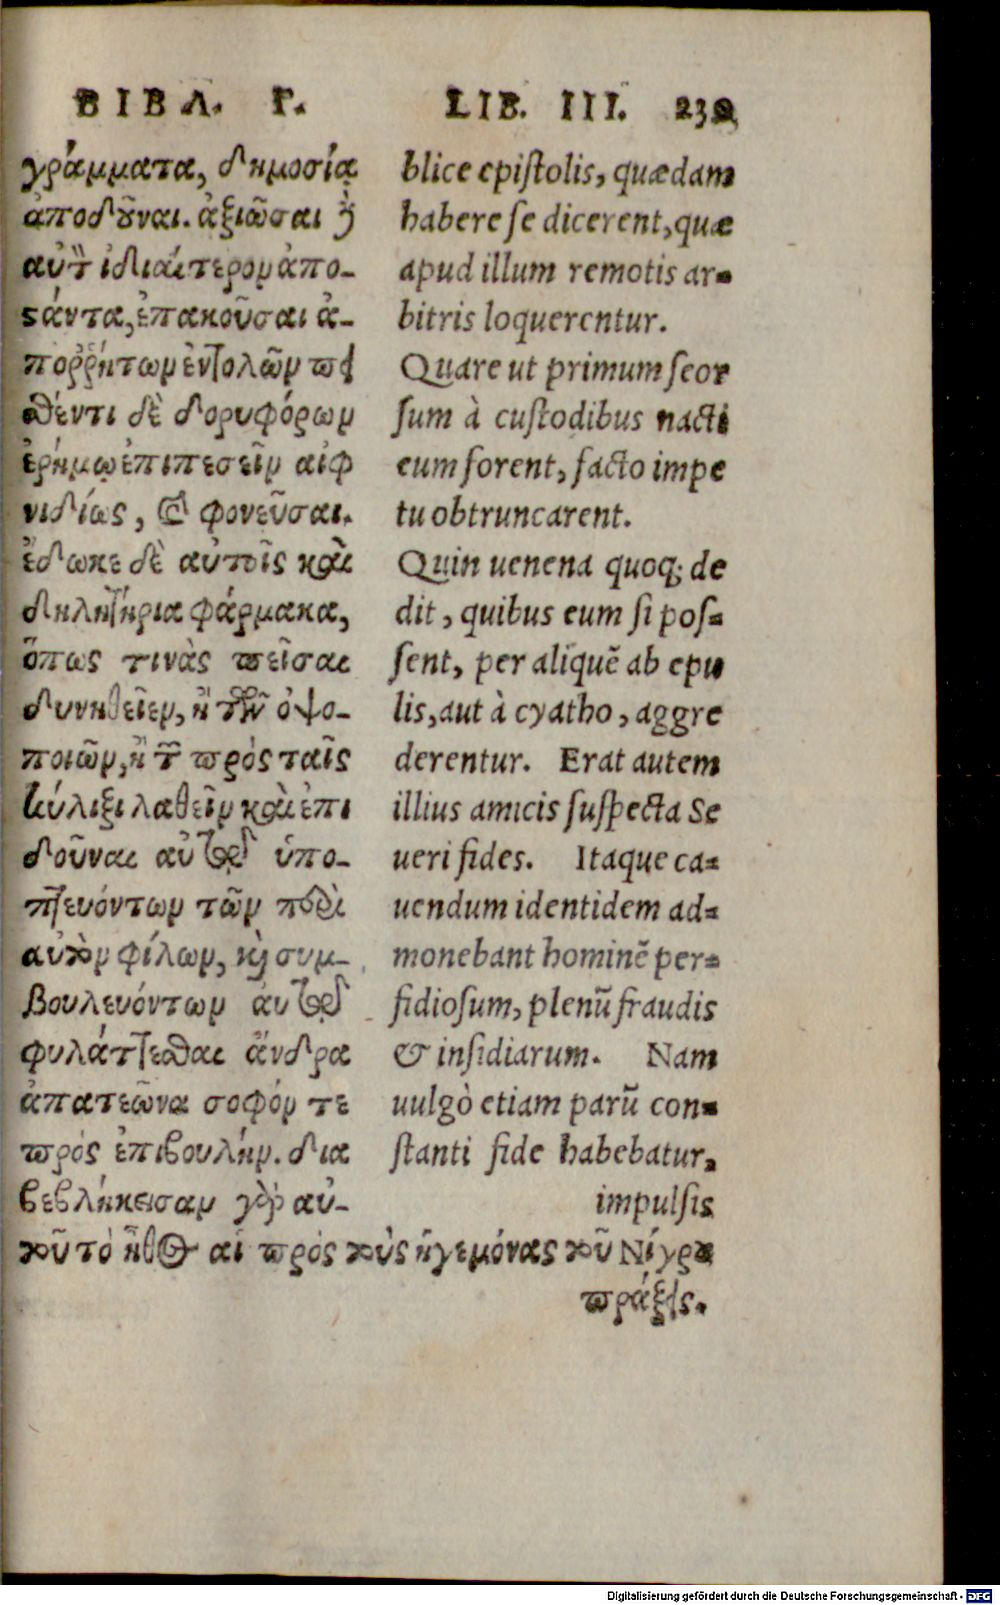 ΒΙΒΛ. Γ.
γράμματα, δημοσίᾳ
ἀποδοῦναι. ἀξιῶσαι δὲ
αὐτὸν ἰδιαίτερον ἀπο-
στάντα, ἐπακοῦσαι ἀ-
πορρήτων ἐντολῶν πει
σθέντι δὲ δορυφόρων
ἐρήμῳ ἐπιπεσεῖν αἰφ
νιδίως, καὶ φονεῦσαι.
ἔδωκε δὲ αὐτοῖς καὶ
δηλητήρια φάρμακα,
ὅπως τινὰς πεῖσαι
δυνηθεῖεν, ἢ τῶν ὀψο-
ποιῶν, ἢ τῶν πρὸς ταῖς
κύλιξι λαθεῖν καὶ ἐπι
δοῦναι αὐτῷ ὑπο-
πτευόντων τῶν περὶ
αὐτὸν φίλων, καὶ συμ-
βουλευόντων αὐτῷ
φυλάττεσθαι ἄνδρα
ἀπατεῶνα σοφόν τε
πρὸς ἐπιβουλήν. δια
βεβλήκεισαν γὰρ αὐ-
τοῦ τὸ ἦθος αἱ πρὸς τοὺς ἡγεμόνας τοῦ Νίγρου
πράξεις.
LIB. III. 239
blice epiſtolis, quædam
habere ſe dicerent, quæ
apud illum remotis ar-
bitris loquerentur.
Quare ut primum ſeor
ſum à cuſtodibus nacti
eum forent, facto impe
tu obtruncarent.
Quin uenena quoq; de
dit, quibus eum ſi poſ-
ſent, per aliquẽ ab epu
lis, aut à cyatho, aggre
derentur. Erat autem
illius amicis ſuſpecta Se
ueri fides. Itaque ca-
uendum identidem ad-
monebant hominẽ per-
fidioſum, plenũ fraudis
& inſidiarum. Nam
uulgò etiam parũ con-
ſtanti fide habebatur,
impulſis
Digitalisierung gefördert durch die Deutsche Forschungsgemeinschaft - DFG